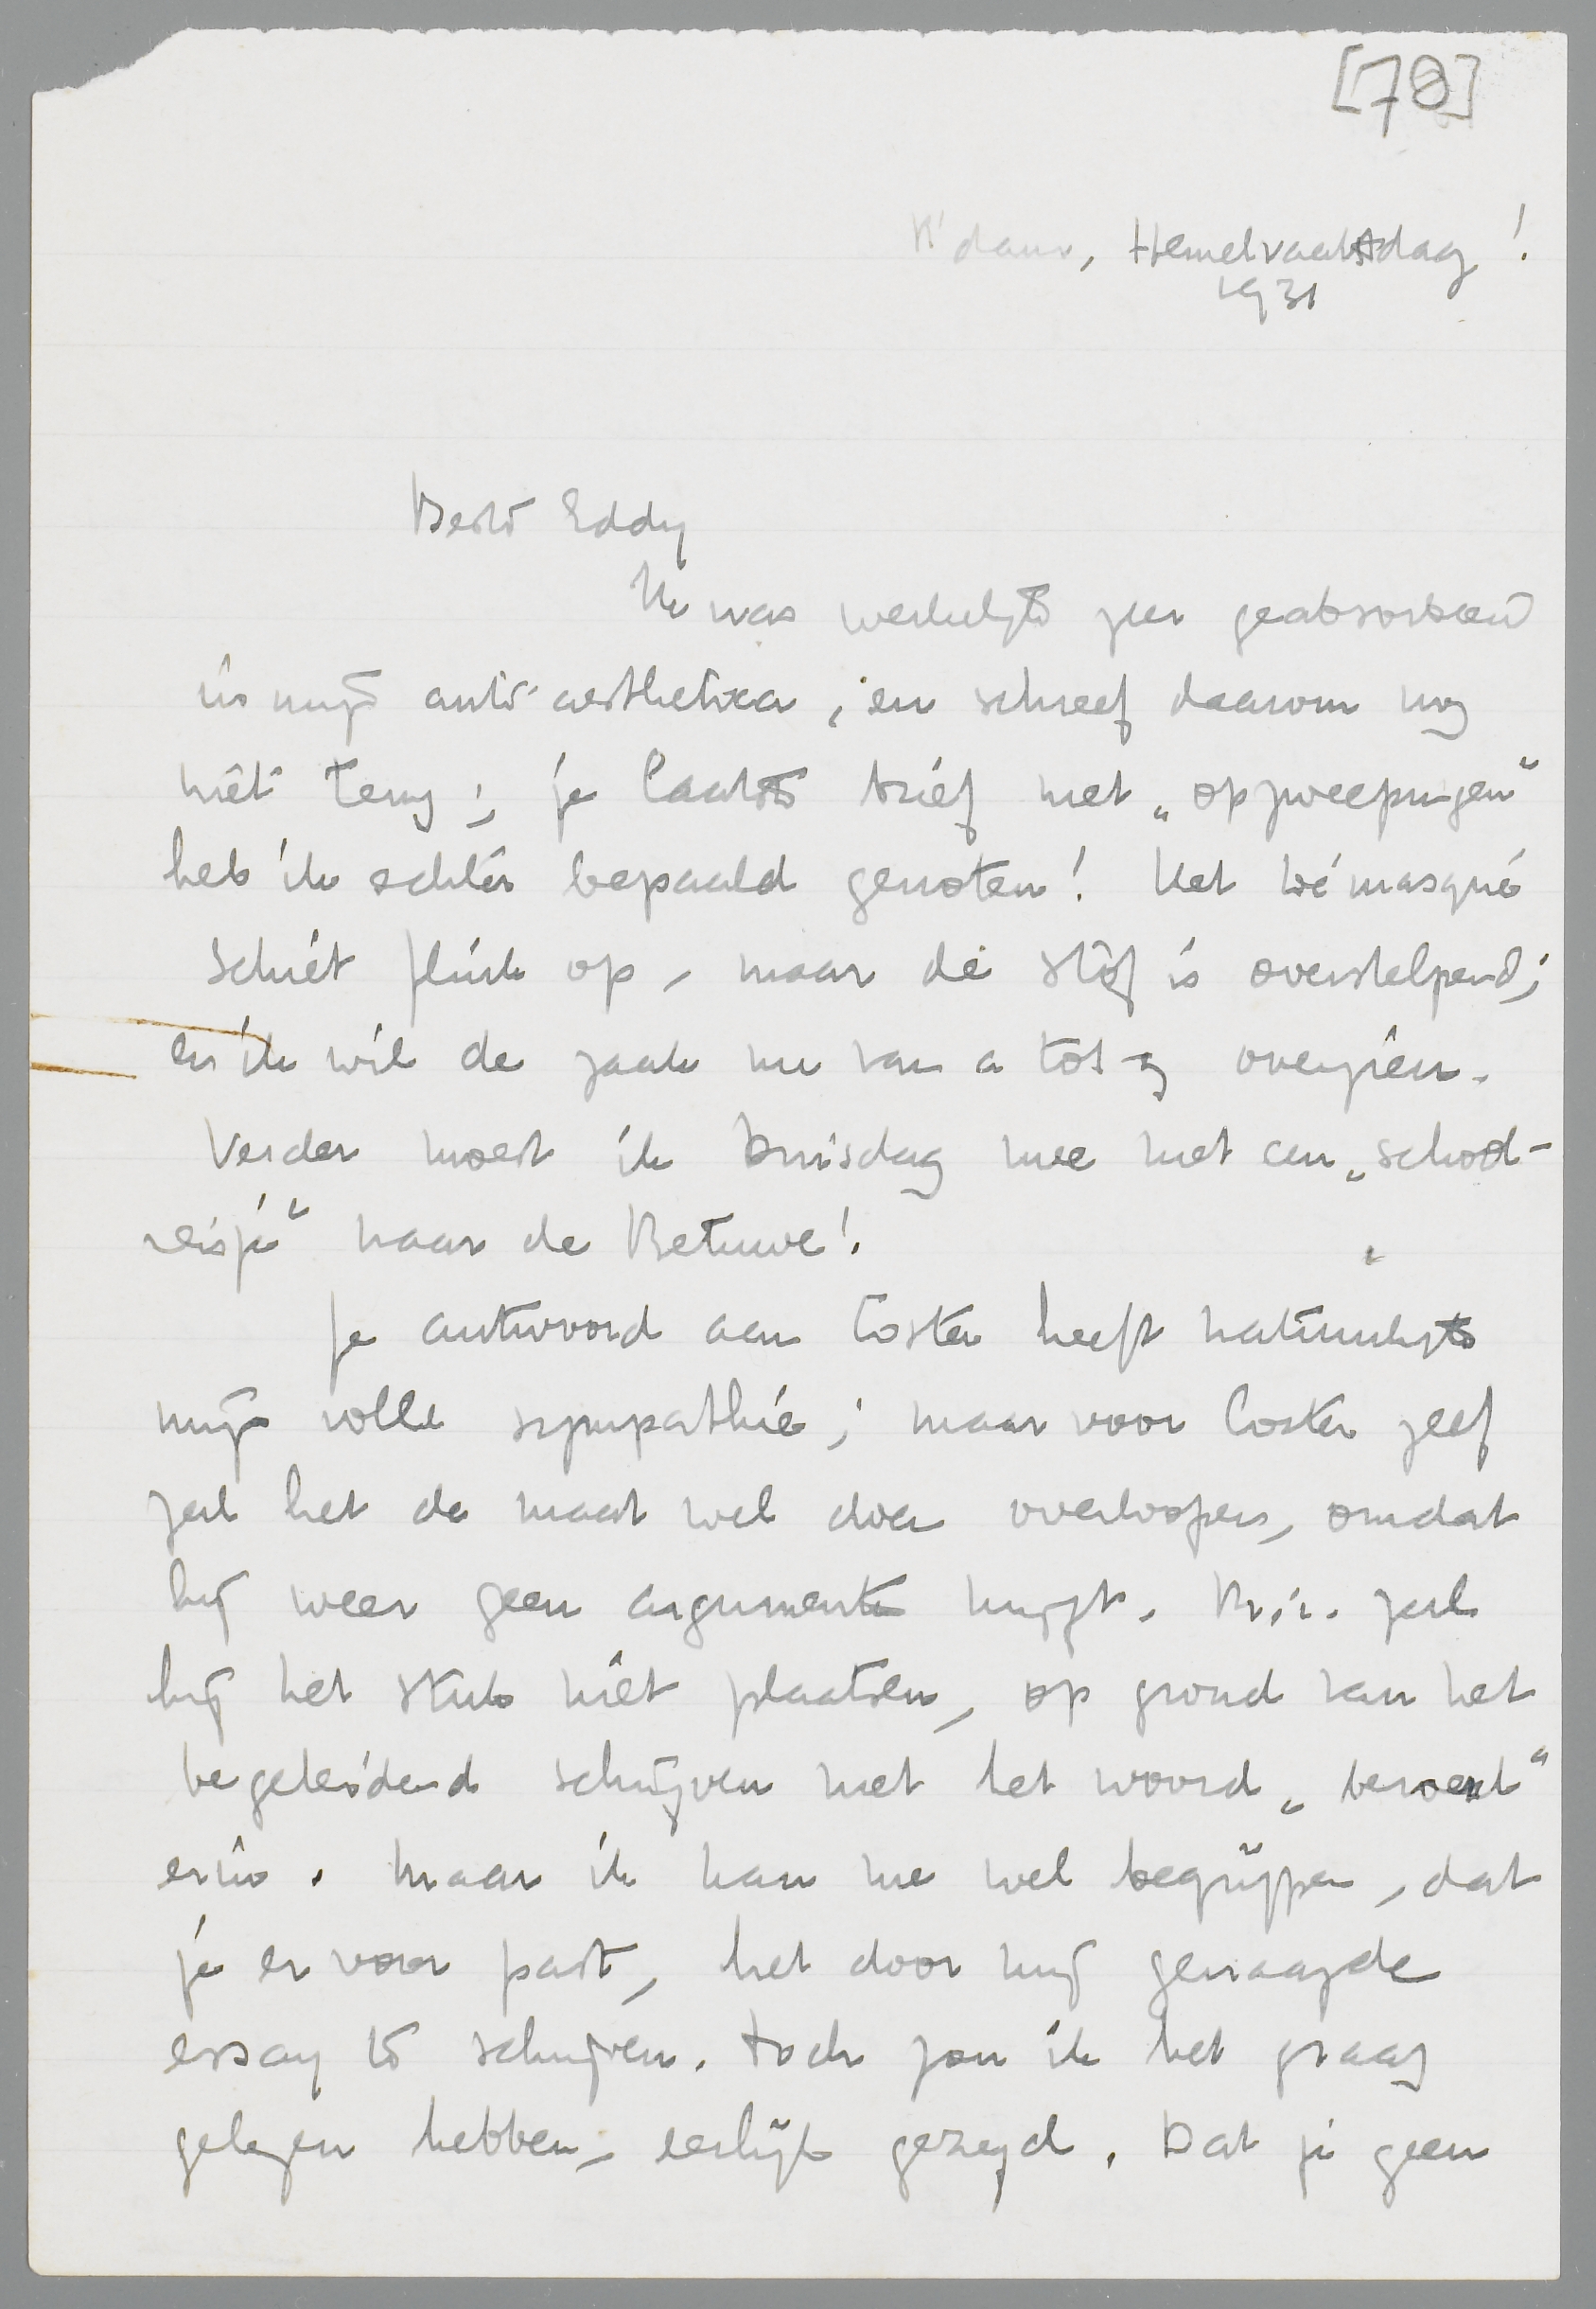 [78]
R'dam, Hemelvaartsdag!
1931
Beste Eddy
Ik was werkelijk zeer geabsorbeerd
in mijn anti-aesthetica, en schreef daarom nog
niet terug; je laatste brief met „opzweepingen"
heb ik echter bepaald genoten! Het Démasqué
schiet flink op, maar de stof is overstelpend;
en ik wil de zaak nu van a tot z overzien.
Verder moest ik Dinsdag mee met een „school-
reisje" naar de Betuwe!
Je antwoord aan Coster heeft natuurlijk
mijn volle sympathie; maar voor Coster zelf
zal het de maat wel doen overloopen, omdat
hij weer geen argumenten krijgt. M.i. zal
hij het stuk niet plaatsen, op grond van het
begeleidend schrijven met het woord „beroerd"
erin. Maar ik kan me wel begrijpen, dat
je er voor past, het door mij gevraagde
essay te schrijven. Toch zou ik het graag
gelezen hebben, eerlijk gezegd. Dat je geen